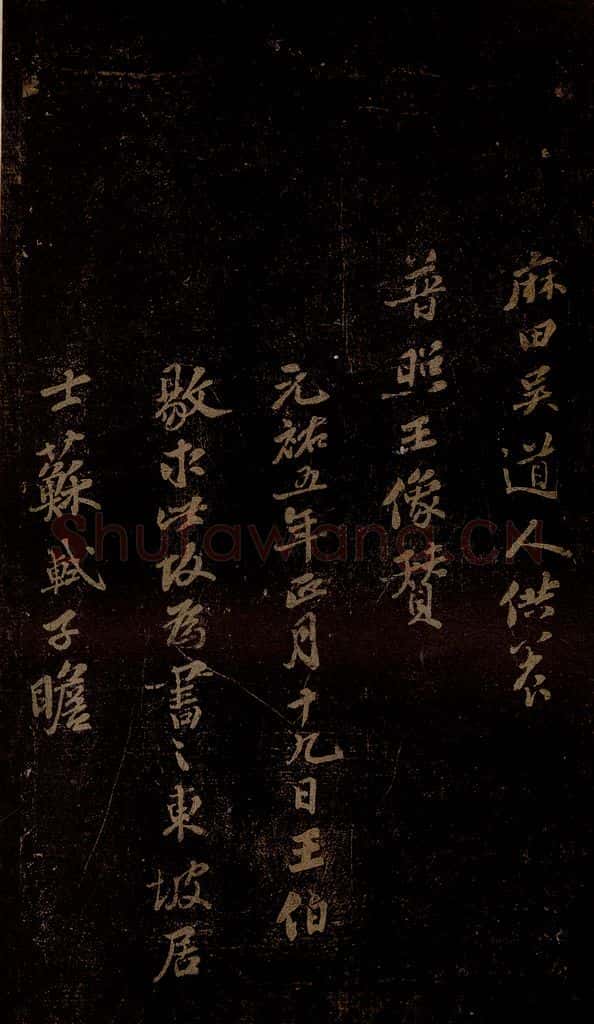 麻田吳道人供養
普照王像贊
元祐五年正月十九日王伯
敭求此故為書之東坡居
士蘇軾子瞻
Shufawang.CN